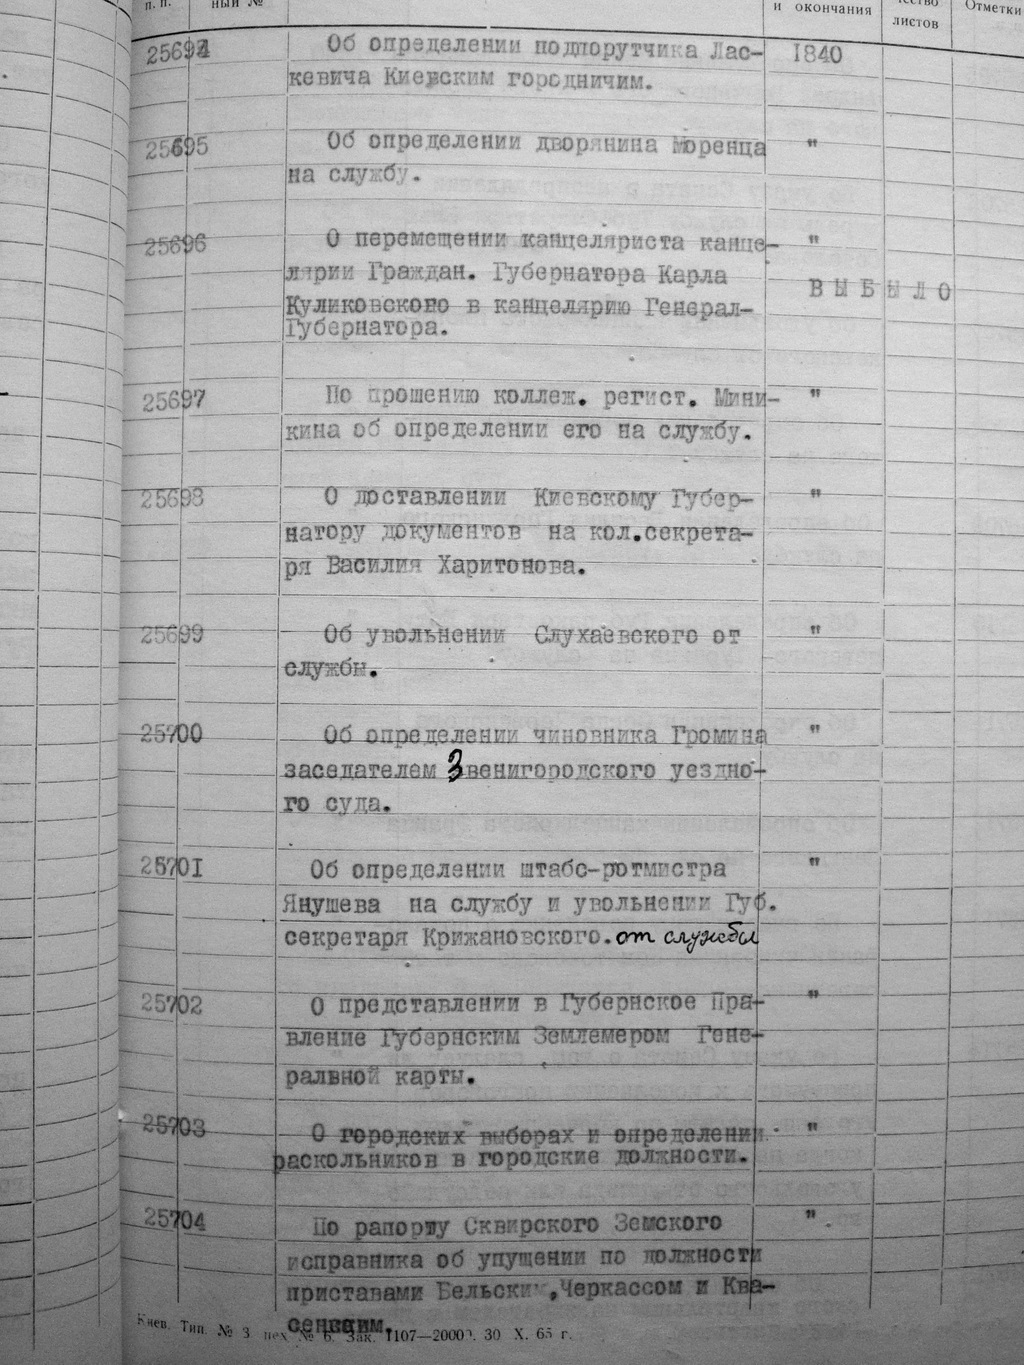 п. п.
ный №
и окончания
чество
листов
Отметки
25694 Об определении подпорутчика Лас- 1840
кевича Киевским городничим.
25695 Об определении дворянина Моренца "
на службу.
25696 О перемещении канцеляриста канце- "
лярии Граждан. Губернатора Карла
ВЫБЫЛО
Куликовского в канцелярию Генерал-
Губернатора.
25697 По прошению коллеж. регист. Мини- "
кина об определении его на службу.
25698 О доставлении Киевскому Губер- "
натору документов на кол.секрета-
ря Василия Харитонова.
25699 Об увольнении Слухаевского от "
службы.
25700 Об определении чиновника Громина "
заседателем Звенигородского уездно-
го суда.
25701 Об определении штабс-ротмистра "
Янушева на службу и увольнении Губ.
секретаря Крижановского. от службы
25702 О представлении в Губернское Пра- "
вление Губернским Землемером Гене-
ралвной карты.
25703 О городских выборах и определении "
раскольников в городские должности.
25704 По рапорту Сквирского Земского "
исправника об упущении по должности
приставами Бельским,Черкассом и Ква-
сенвцим.
Киев. Тип. № 3 цех № 6. Зак. 1107—20000. 30 X. 65 г.